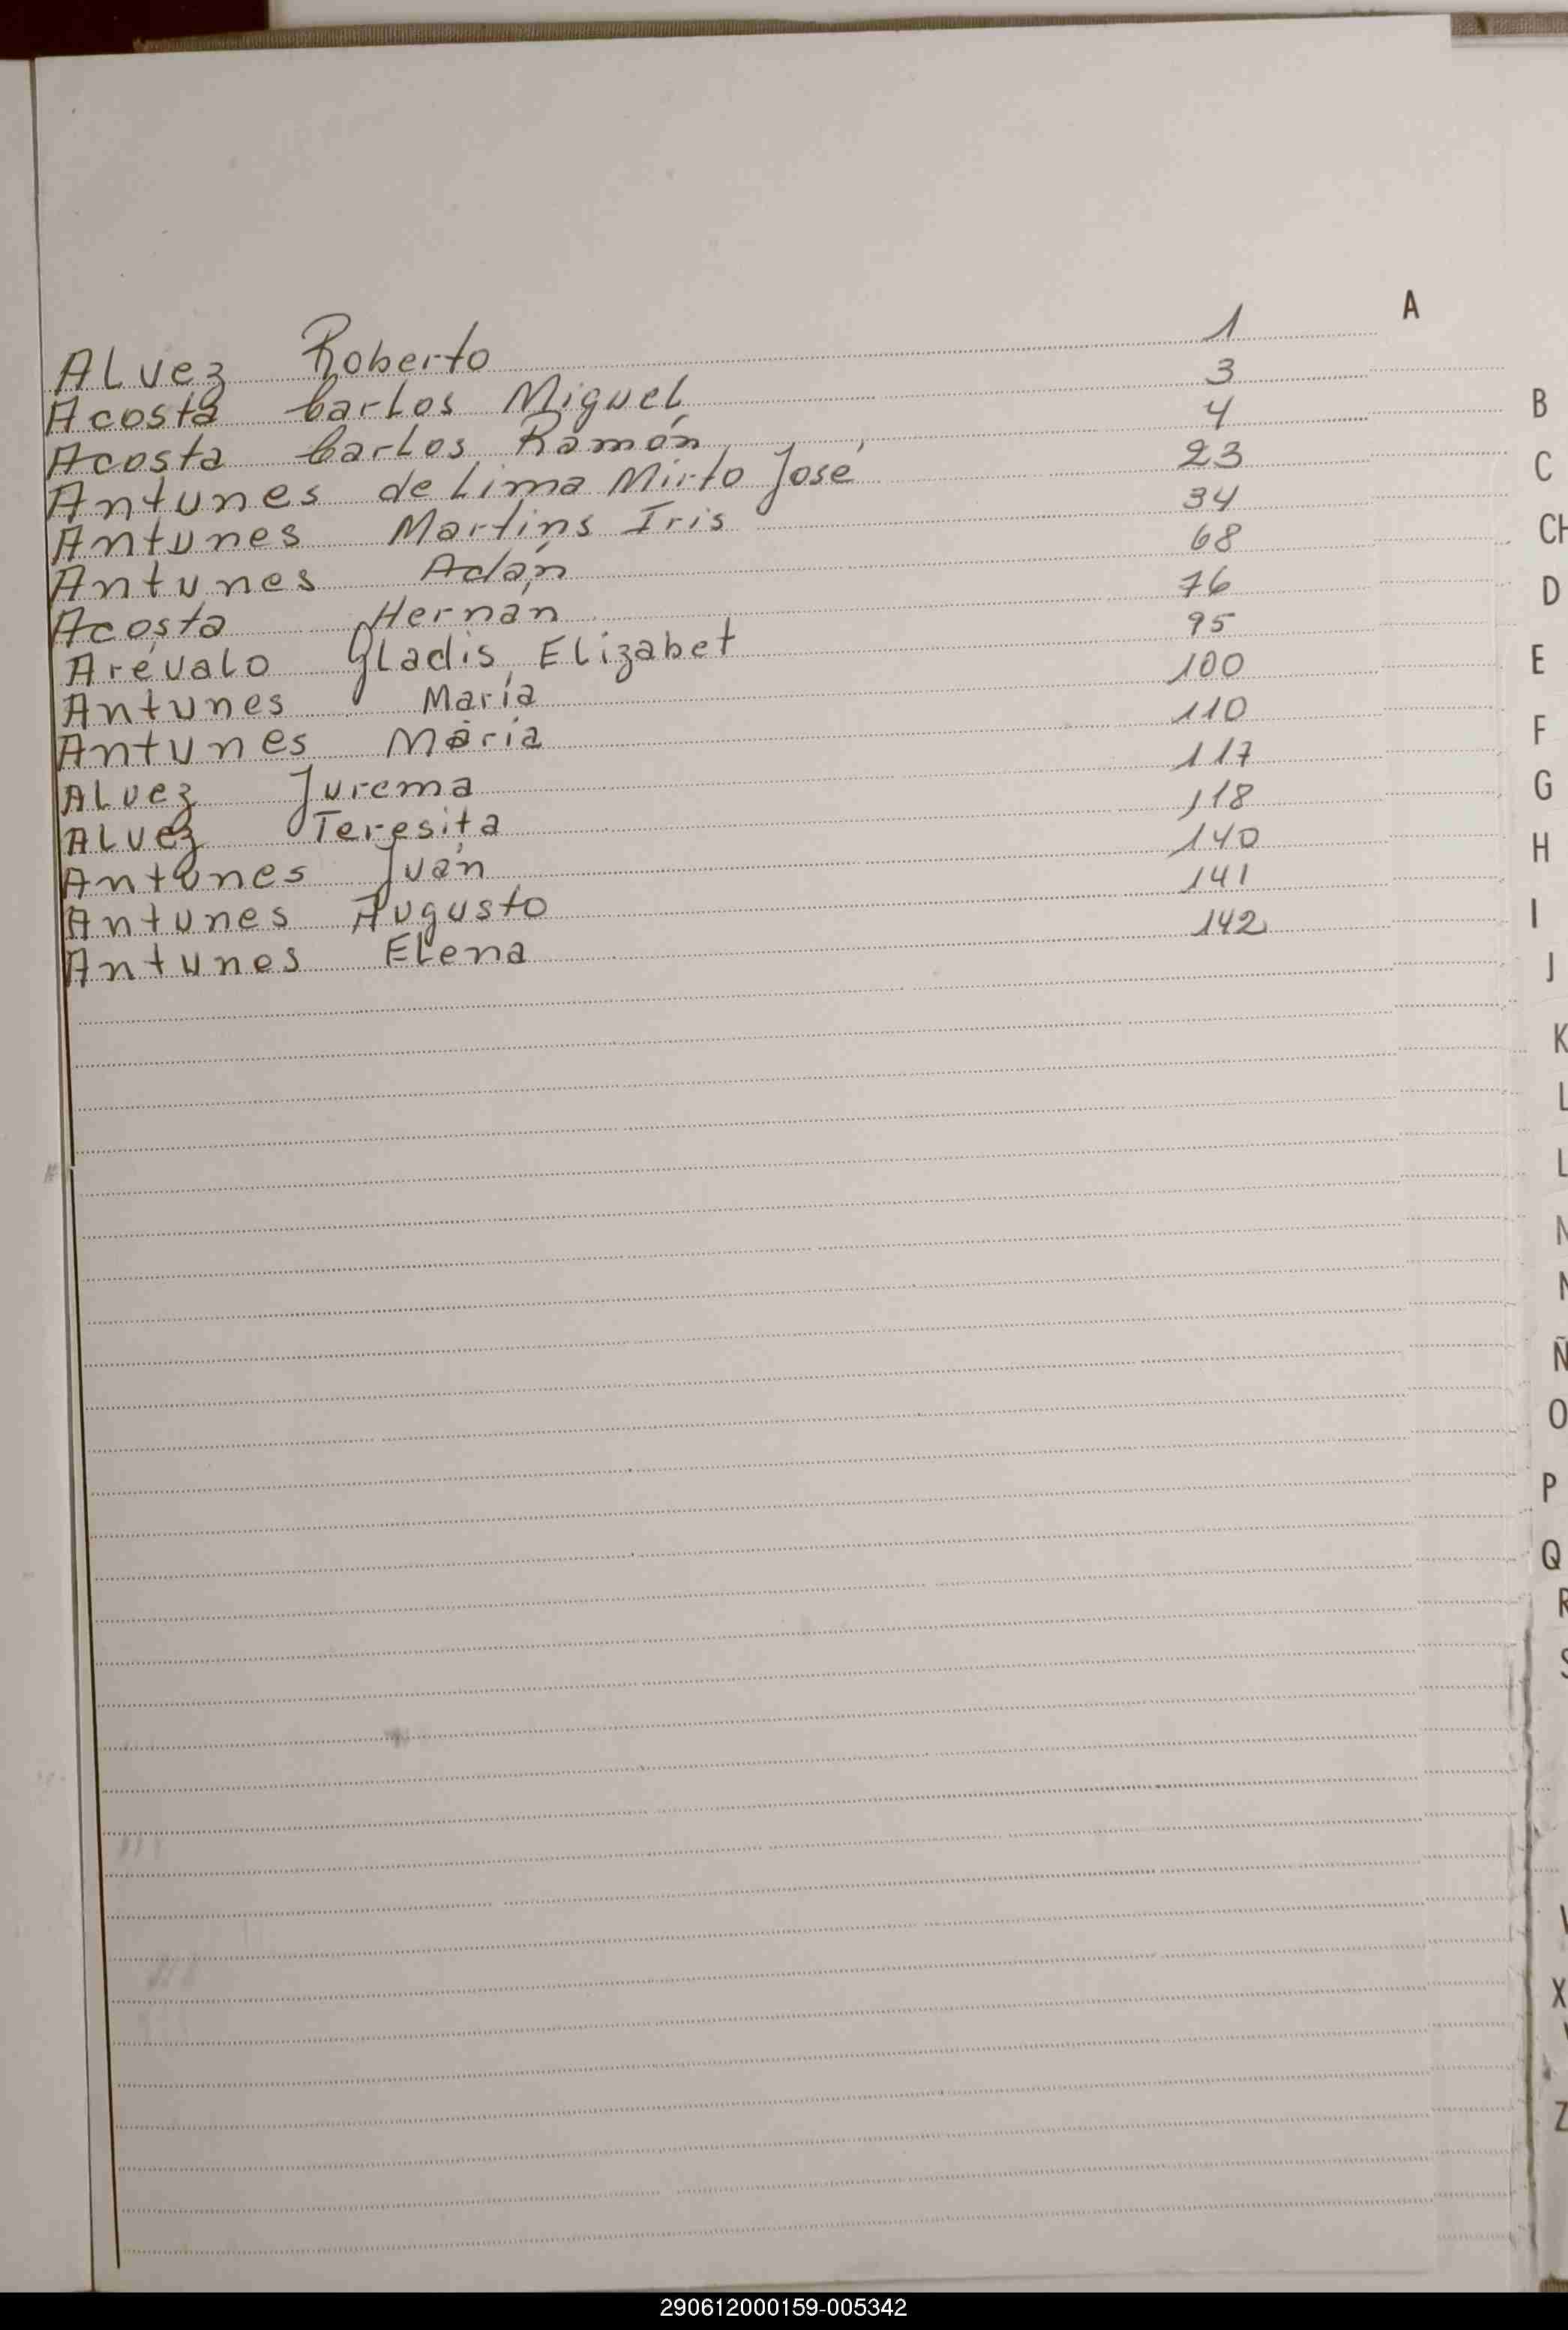 A
Alvez Roberto 1
Acosta Carlos Miguel 3
Acosta Carlos Ramón 4
Antunes de Lima Mirto José 23
Antunes Martins Iris 34
Antunes Adán 68
Acosta Hernán 76
Arévalo Gladis Elizabet 95
Antunes María 100
Antunes María 110
Alvez Jurema 117
Alvez Teresita 118
Antunes Juán 140
Antunes Augusto 141
Antunes Elena 142
B
C
CH
D
E
F
G
H
I
J
K
L
Ñ
O
P
Q
R
S
X
Z
290612000159-005342